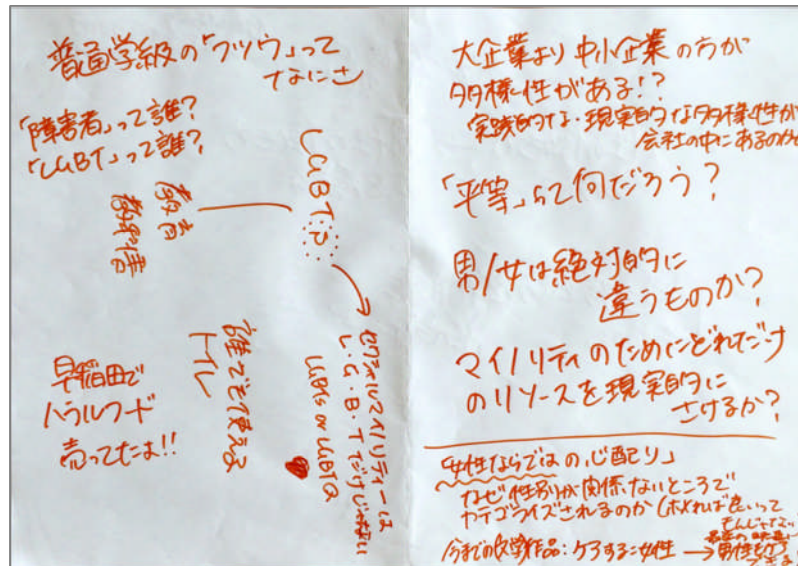 普通学級の「フツウ」って
なにさ
「障害者」って誰?
「LGBT」って誰?
LGBT:?
教育
教科書
→ セクシャルマイノリティーは
L・G・B・Tだけじゃない
LGBTs or LGBTQ
誰でも使える
トイレ
早稲田で
ハラルフード
売ってたよ!!
大企業より中小企業の方が
多様性がある!?
実践的な・現実的な多様性が
会社の中にあるのかも
「平等」って何だろう?
男/女は絶対的に
違うものか?
マイノリティのためにどれだけ
のリソースを現実的に
さけるか?
「女性ならではの心配り」
なぜ性別が関係ないところで
カテゴライズされるのか(ホメれば良いって
もんじゃない
今までの文学作品:ケアする女性 → 男性もケア
できる!